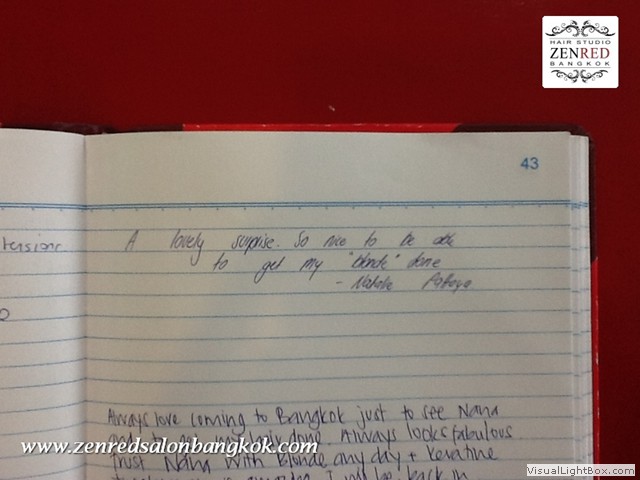 HAIR STUDIO
ZENRED
BANGKOK
43
A lovely surprise. So nice to be able
to get my "blonde" done
- Natalie Pattaya
Always love coming to Bangkok just to see Nana
my hair done. Always looks fabulous
Trust Nana with blonde any day + keratine
I will be back in
www.zenredsalonbangkok.com
VisualLightBox.com